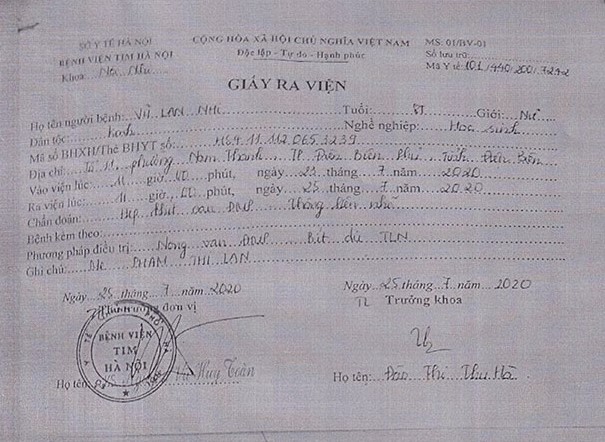 SỞ Y TẾ HÀ NỘI
BỆNH VIỆN TIM HÀ NỘI
Khoa: Nội Nhi
CỘNG HÒA XÃ HỘI CHỦ NGHĨA VIỆT NAM
Độc lập - Tự do - Hạnh phúc
MS: 01/BV-01
Số lưu trữ:
Mã Y tế 101/440/200/7242
GIẤY RA VIỆN
Họ tên người bệnh: VŨ LAN NHI Tuổi: Giới: Nữ
Dân tộc: Kinh Nghề nghiệp: Học sinh
Mã số BHXH/Thẻ BHYT số: 
Địa chỉ: Tổ 11, phường Nam Thanh, TP Điện Biên Phủ, Tỉnh Điện Biên
Vào viện lúc: 11 giờ, 00 phút, ngày 21 tháng 7 năm 2020
Ra viện lúc: 11 giờ, 00 phút, ngày 25 tháng 7 năm 2020
Chẩn đoán: Hẹp khít van ĐMP - Thông liên nhĩ
Bệnh kèm theo:
Phương pháp điều trị: Nong van ĐMP - Bít dù TLN
Ghi chú: Mẹ PHẠM THỊ LAN
Ngày 25 tháng 7 năm 2020
Thủ trưởng đơn vị
BỆNH VIỆN
TIM
HÀ NỘI
Họ tên: Huy Toàn
Ngày 25 tháng 7 năm 2020
TL Trưởng khoa
Họ tên: Đào Thị Thu Hà